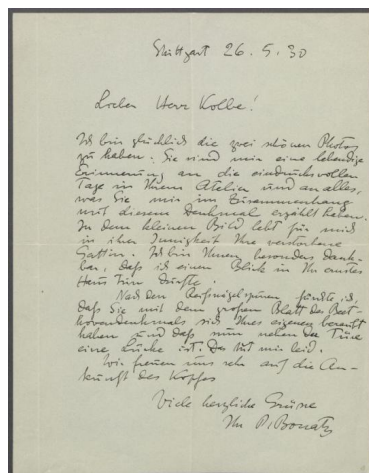 Stuttgart 26.5.30
Lieber Herr Kolbe!
Ich bin glücklich die zwei schönen Photos
zu haben. Sie sind mir eine lebendige
Erinnerung an die eindrucksvollen
Tage in Ihrem Atelier und an alles,
was Sie mir im Zusammenhang
mit diesem Denkmal erzählt haben.
In dem kleinen Bild lebt für mich
in ihrer Innigkeit Ihre verstorbene
Gattin. Ich bin Ihnen besonders dank-
bar, daß ich einen Blick in Ihr ernstes
Haus tun durfte.
Nach den Reißnägelspuren fürchte ich,
daß Sie mit dem großen Blatt des Beet-
hovendenkmals sich Ihres eigenen beraubt
haben und daß nun neben der Türe
eine Lücke ist. Das tut mir leid.
Wir freuen uns sehr auf die An-
kunft des Kopfes
Viele herzliche Grüsse
Ihr P. Bonatz